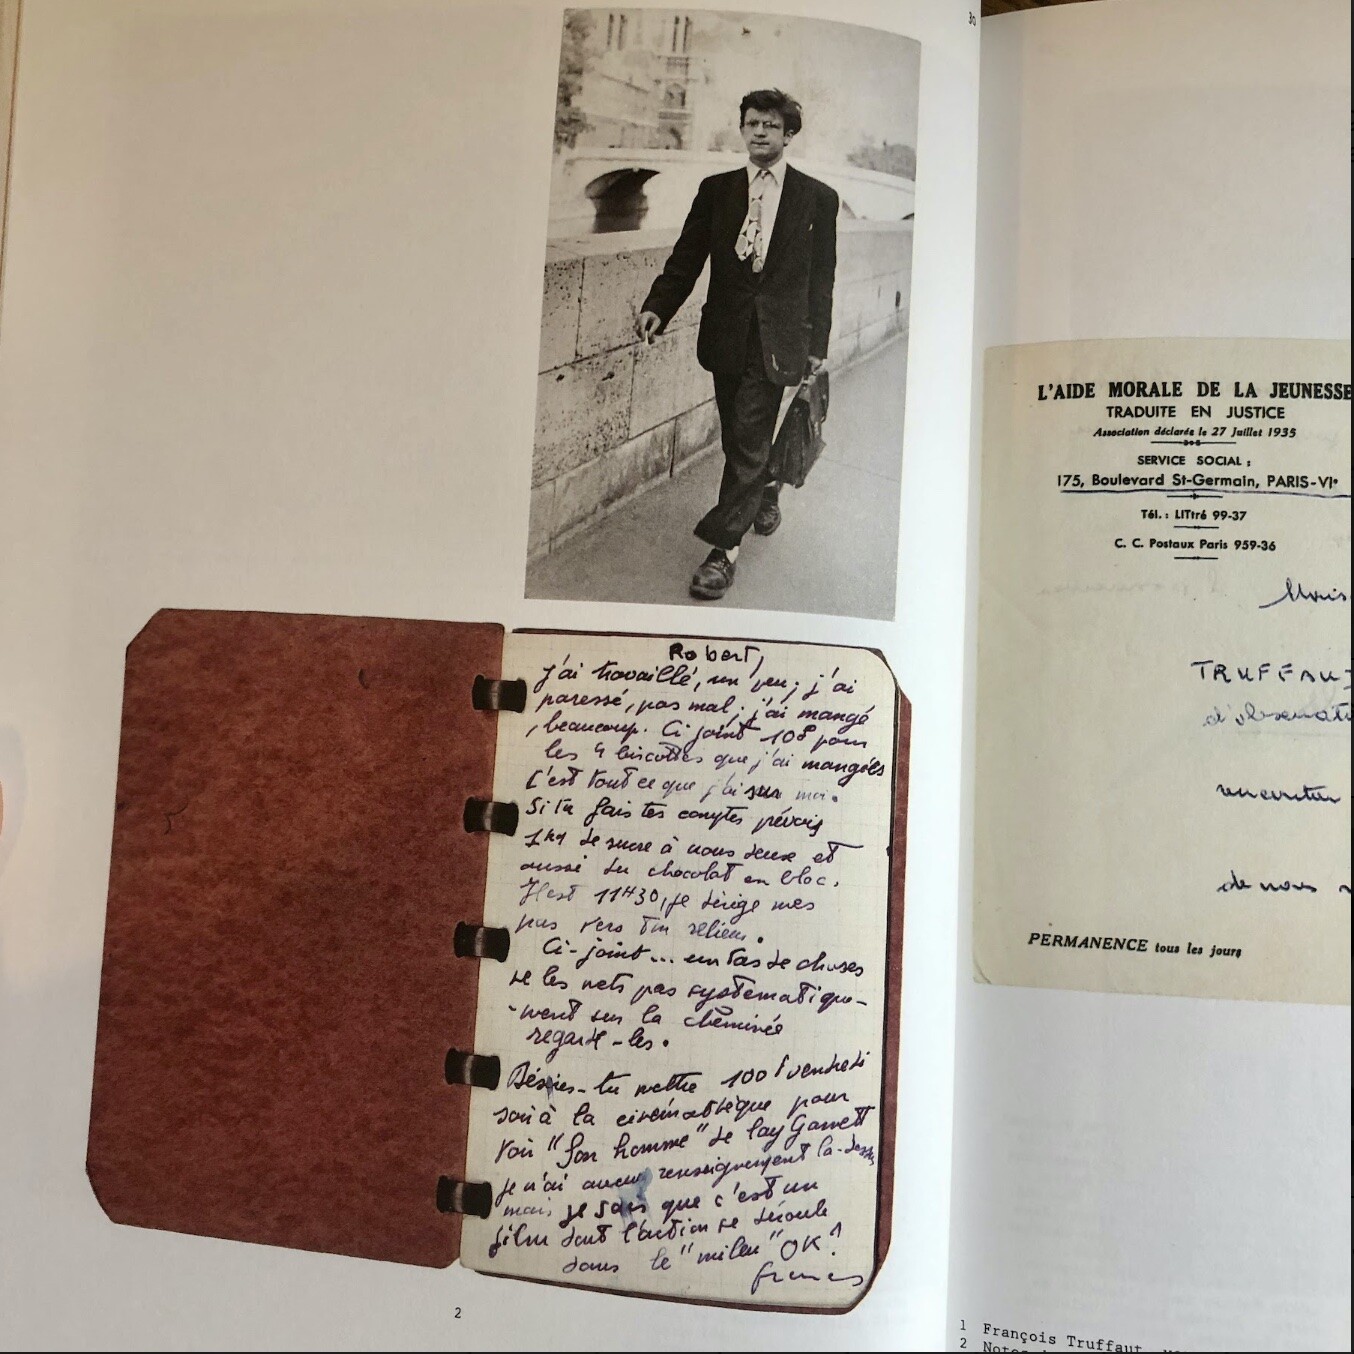 30
Robert,
j'ai travaillé, un peu; j'ai
paressé, pas mal; j'ai mangé
, beaucoup. Ci joint 10F pour
les 4 biscottes que j'ai mangées
C'est tout ce que j'ai sur moi.
Si tu fais tes comptes prévois
1kg de sucre à nous deux et
aussi du chocolat en bloc.
Il est 11H30, je dirige mes
pas vers ton
Ci-joint... un tas de choses
ne les mets pas systématique-
-ment sur la cheminée
regarde-les.
Désires-tu mettre 100F vendredi
soir à la cinémathèque pour
voir "Son homme" de Tay Garnett
je n'ai aucun renseignement là-dessus
mais je sais que c'est un
film dont l'action se déroule
dans le "milieu" OK?
2
L'AIDE MORALE DE LA JEUNESSE
TRADUITE EN JUSTICE
Association déclarée le 27 Juillet 1935
SERVICE SOCIAL :
175, Boulevard St-Germain, PARIS-VIe
Tél. : LITtré 99-37
C. C. Postaux Paris 959-36
TRUFFAUT
de nous
PERMANENCE tous les jours
1 François Truffaut
2